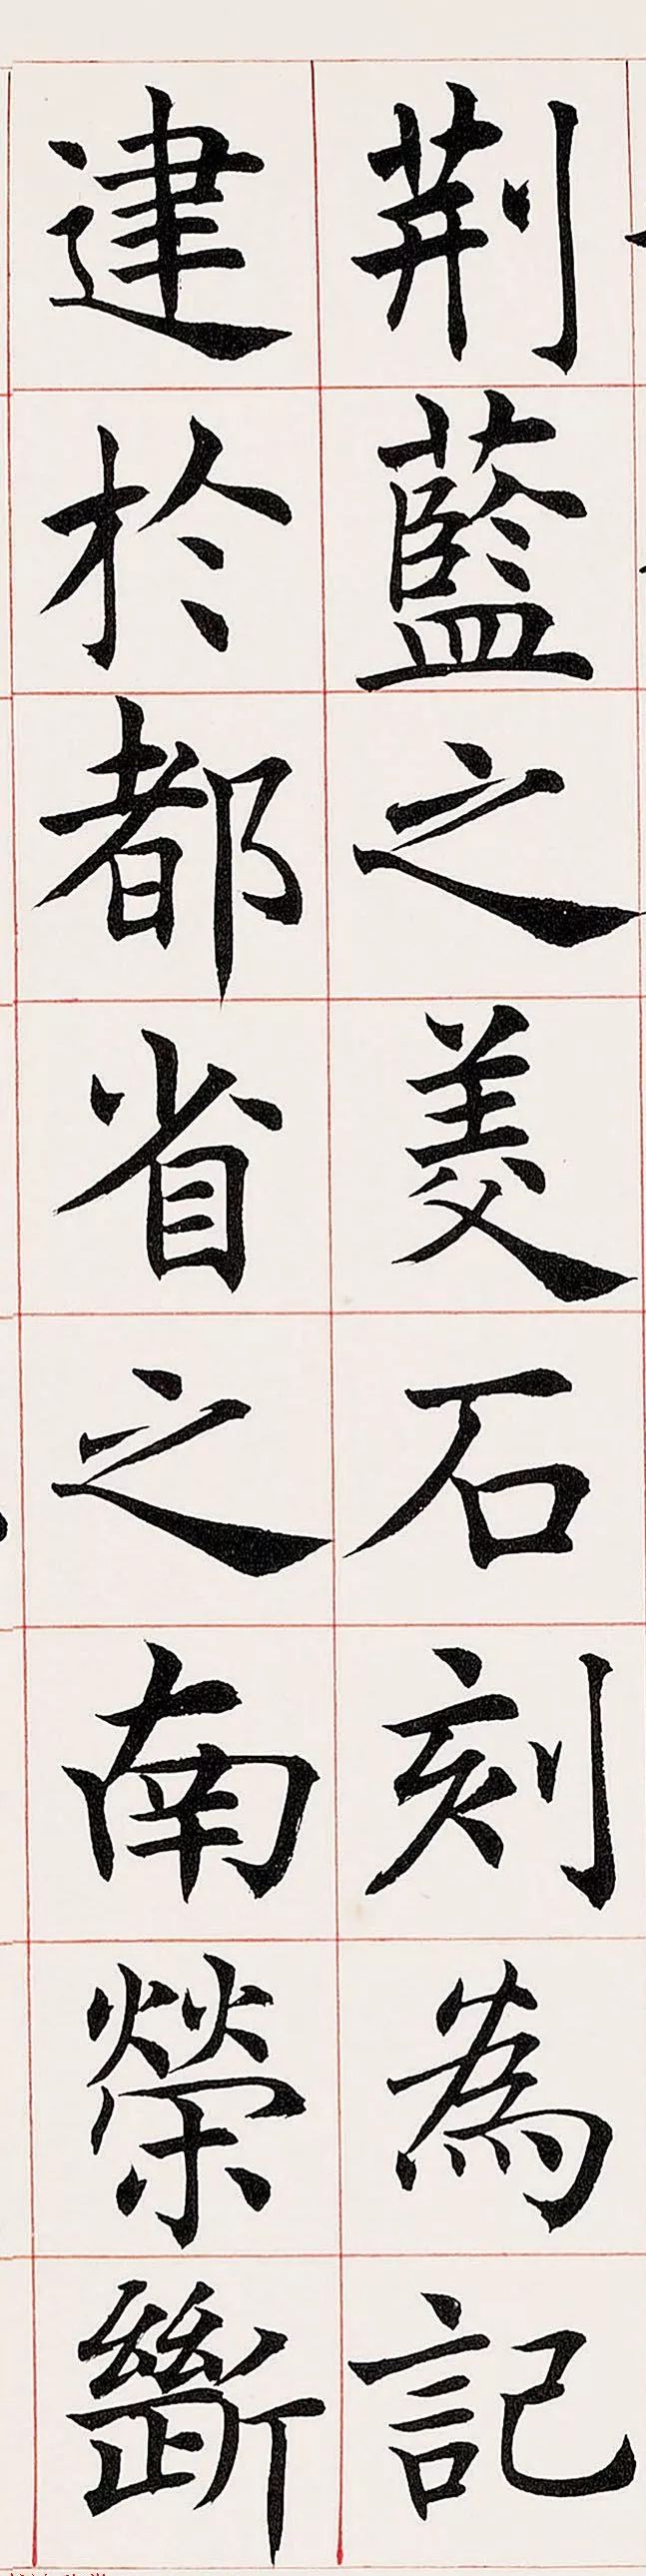 荆藍之美石刻為記
建於都省之南榮斷